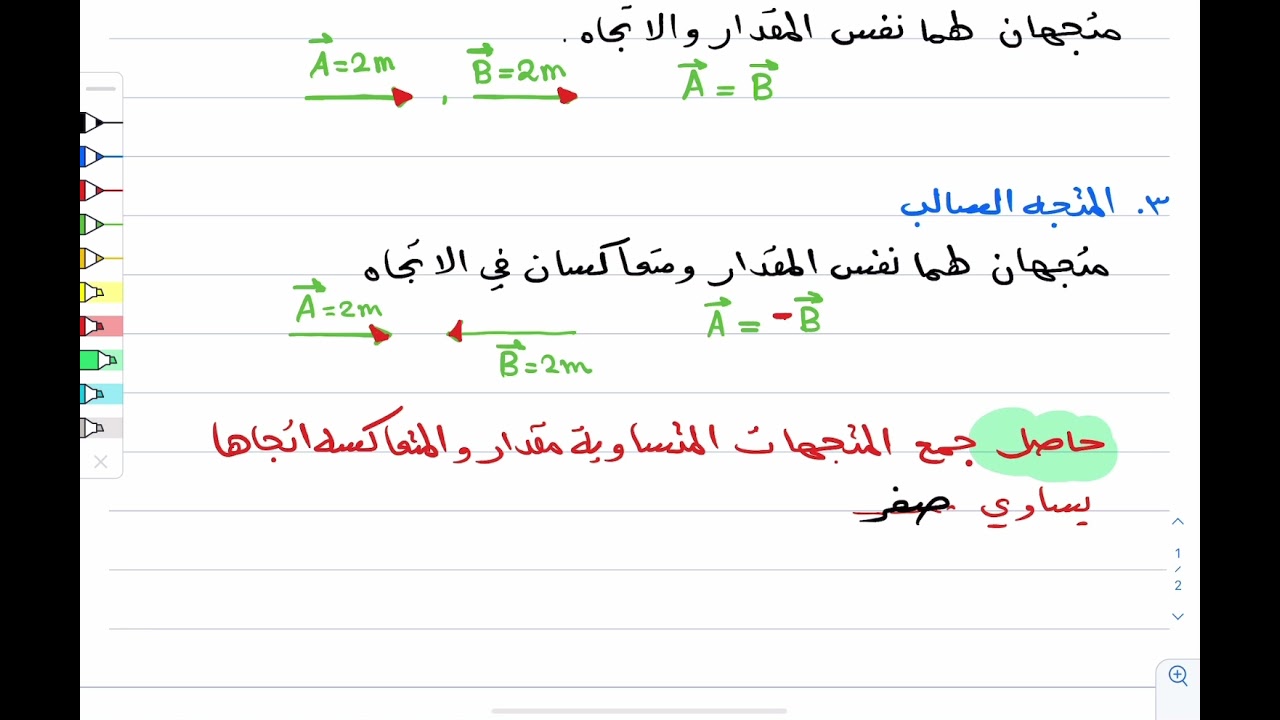 متجهان لهما نفس المقدار والاتجاه.
A=2m , B=2m A = B
٣. المتجه السالب
متجهان لهما نفس المقدار ومتعاكسان في الاتجاه
A=2m A = -B
B=2m
حاصل جمع المتجهات المتساوية مقدار والمتعاكسه اتجاها
يساوي صفر
1
/
2